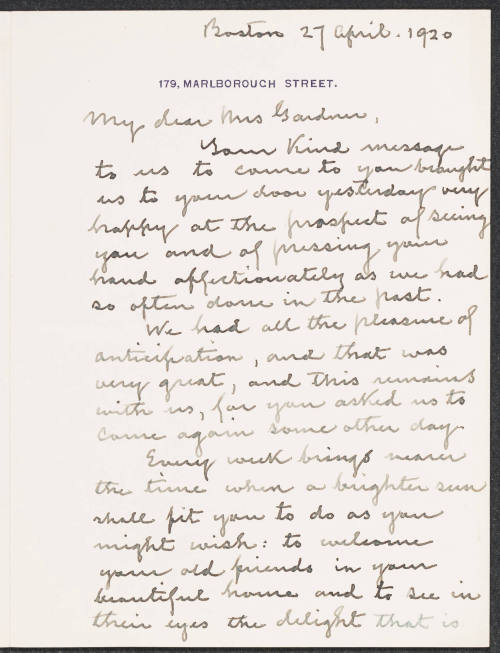 Boston 27 April. 1920
179, MARLBOROUGH STREET.
My dear Mrs Gardner,
Your kind message
to us to come to you brought
us to your door yesterday very
happy at the prospect of seeing
you and of pressing your
hand affectionately as we had
so often done in the past.
We had all the pleasure of
anticipation, and that was
very great, and this remains
with us, for you asked us to
come again some other day.
Every week brings nearer
the time when a brighter sun
shall fit you to do as you
might wish: to welcome
your old friends in your
beautiful home and to see in
their eyes the delight that is